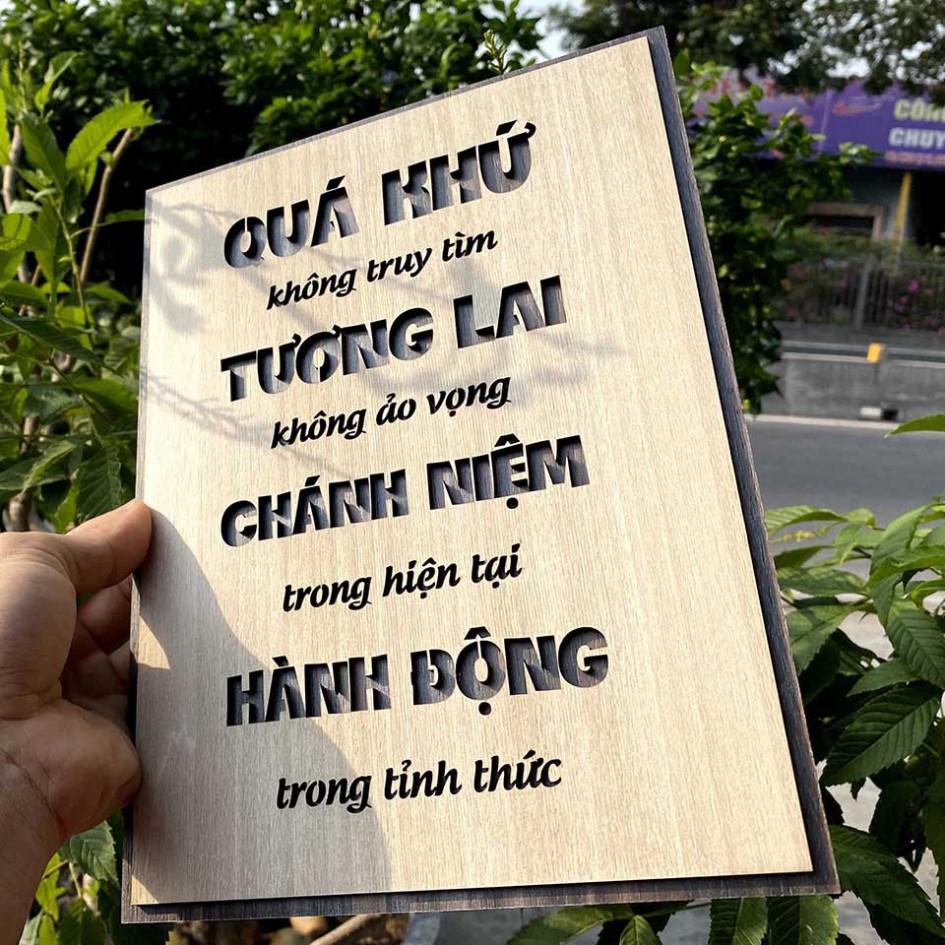 QUÁ KHỨ
không truy tìm
TƯƠNG LAI
không ảo vọng
CHÁNH NIỆM
trong hiện tại
HÀNH ĐỘNG
trong tỉnh thức
CÔN
CHUY